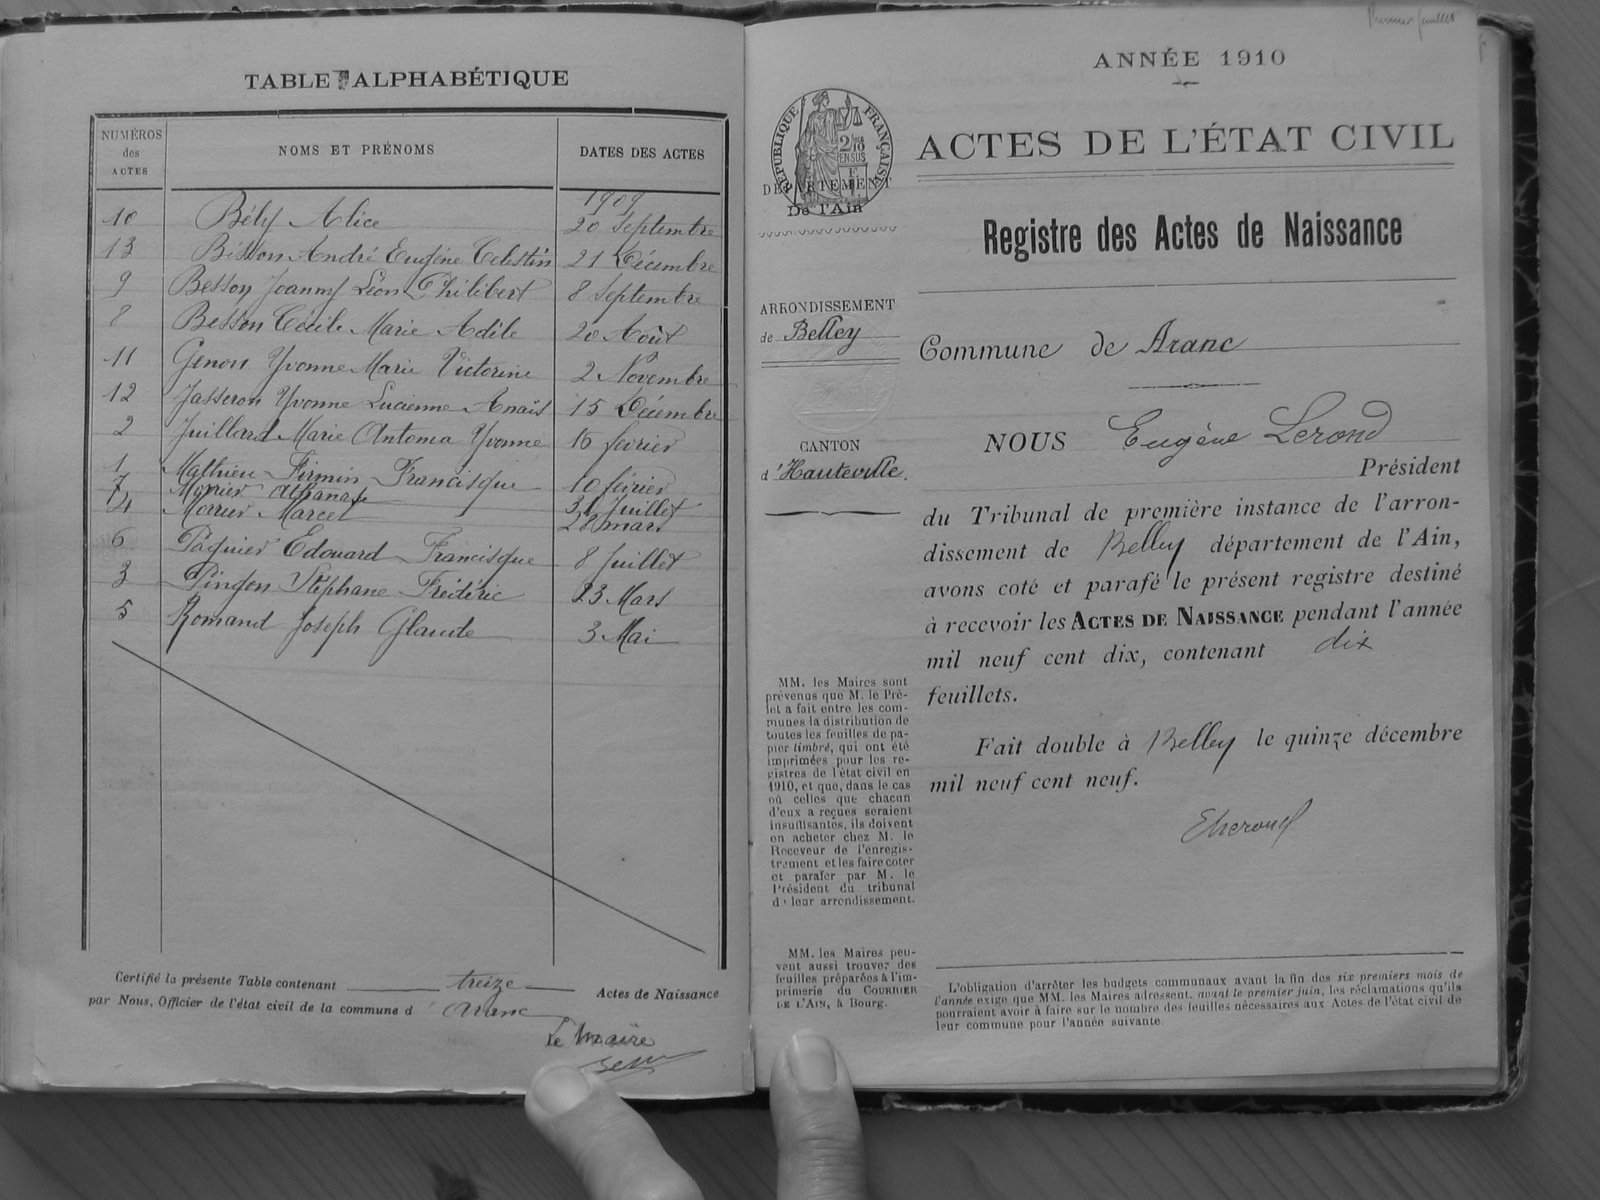 TABLE ALPHABÉTIQUE
NUMÉROS
des
ACTES
NOMS ET PRÉNOMS
DATES DES ACTES
1909
10 Bély Alice 20 Septembre
13 Besson André Eugène Celestin 21 Décembre
9 Besson Joanny Léon Philibert 8 Septembre
8 Besson Cécile Marie Adèle 20 Août
11 Genou Yvonne Marie Victorine 2 Novembre
12 Jasseron Yvonne Lucienne Anaïs 15 Décembre
2 Juillard Marie Antonia Yvonne 16 février
1 Mathieu Firmin Francisque 10 février
7 Morrier Athanase 31 Juillet
4 Morrier Marcel 28 mars
6 Paquier Edouard Francisque 8 Juillet
3 Pingon Stéphane Frédéric 23 Mars
5 Romand Joseph Claude 3 Mai
Certifié la présente Table contenant treize Actes de Naissance
par Nous, Officier de l'état civil de la commune d'Aranc
Le Maire
Premier feuillet
ANNÉE 1910
RÉPUBLIQUE FRANÇAISE
DÉPARTEMENT
De l'Ain
ARRONDISSEMENT
de Belley
CANTON
d'Hauteville.
MM. les Maires sont
prévenus que M. le Pré-
fet a fait entre les com-
munes la distribution de
toutes les feuilles de pa-
pier timbré, qui ont été
imprimées pour les re-
gistres de l'état civil en
1910, et que, dans le cas
où celles que chacun
d'eux a reçues seraient
insuffisantes, ils doivent
en acheter chez M. le
Receveur de l'enregis-
trement et les faire coter
et parafer par M. le
Président du tribunal
de leur arrondissement.
MM. les Maires peu-
vent aussi trouver des
feuilles préparées à l'im-
primerie du COURRIER
DE L'AIN, à Bourg.
ACTES DE L'ÉTAT CIVIL
Registre des Actes de Naissance
Commune de Aranc
NOUS Eugène Lerond
Président
du Tribunal de première instance de l'arron-
dissement de Belley département de l'Ain,
avons coté et parafé le présent registre destiné
à recevoir les ACTES DE NAISSANCE pendant l'année
mil neuf cent dix, contenant dix
feuillets.
Fait double à Belley le quinze décembre
mil neuf cent neuf.
ELerond
L'obligation d'arrêter les budgets communaux avant la fin des six premiers mois de
l'année exige que MM. les Maires adressent, avant le premier juin, les réclamations qu'ils
pourraient avoir à faire sur le nombre des feuilles nécessaires aux Actes de l'état civil de
leur commune pour l'année suivante